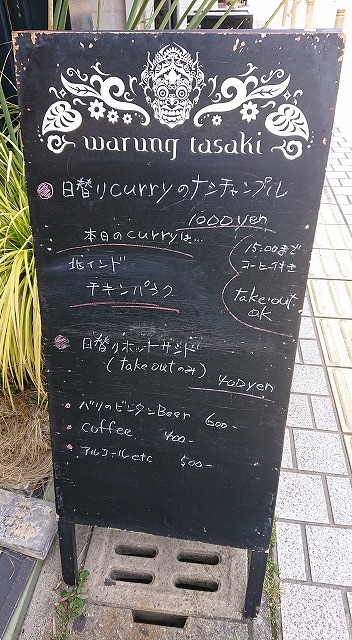 warung tasaki
日替りcurryのナシチャンプル
1000yen
本日のcurryは…
北インド
チキンパラク
15:00まで
コーヒー付き
takeout
OK
日替りホットサンド
(takeoutのみ)
400yen
バリのビンタンBeer 600-
coffee 400-
アルコールetc 500-